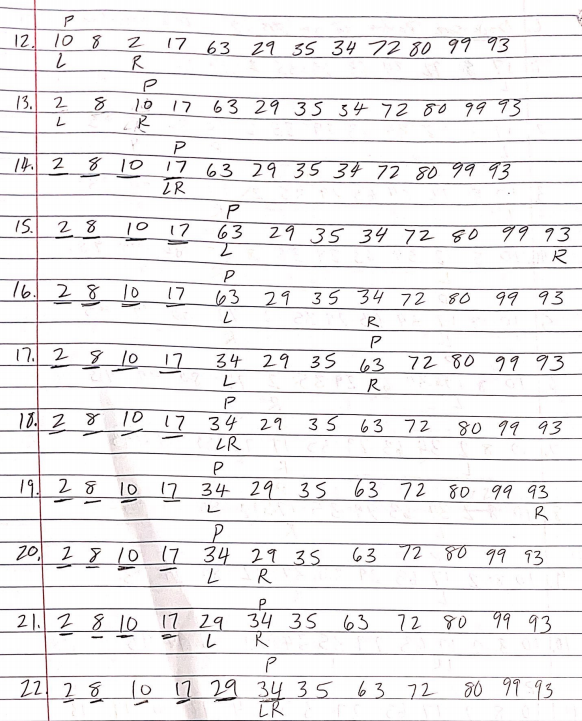 P
12. 10 8 2 17 63 29 35 34 72 80 99 93
L R
P
13. 2 8 10 17 63 29 35 34 72 80 99 93
L R
P
14. 2 8 10 17 63 29 35 34 72 80 99 93
LR
P
15. 2 8 10 17 63 29 35 34 72 80 99 93
L R
P
16. 2 8 10 17 63 29 35 34 72 80 99 93
L R
P
17. 2 8 10 17 34 29 35 63 72 80 99 93
L R
P
18. 2 8 10 17 34 29 35 63 72 80 99 93
LR
P
19. 2 8 10 17 34 29 35 63 72 80 99 93
L R
P
20. 2 8 10 17 34 29 35 63 72 80 99 93
L R
P
21. 2 8 10 17 29 34 35 63 72 80 99 93
L R
P
22. 2 8 10 17 29 34 35 63 72 80 99 93
LR